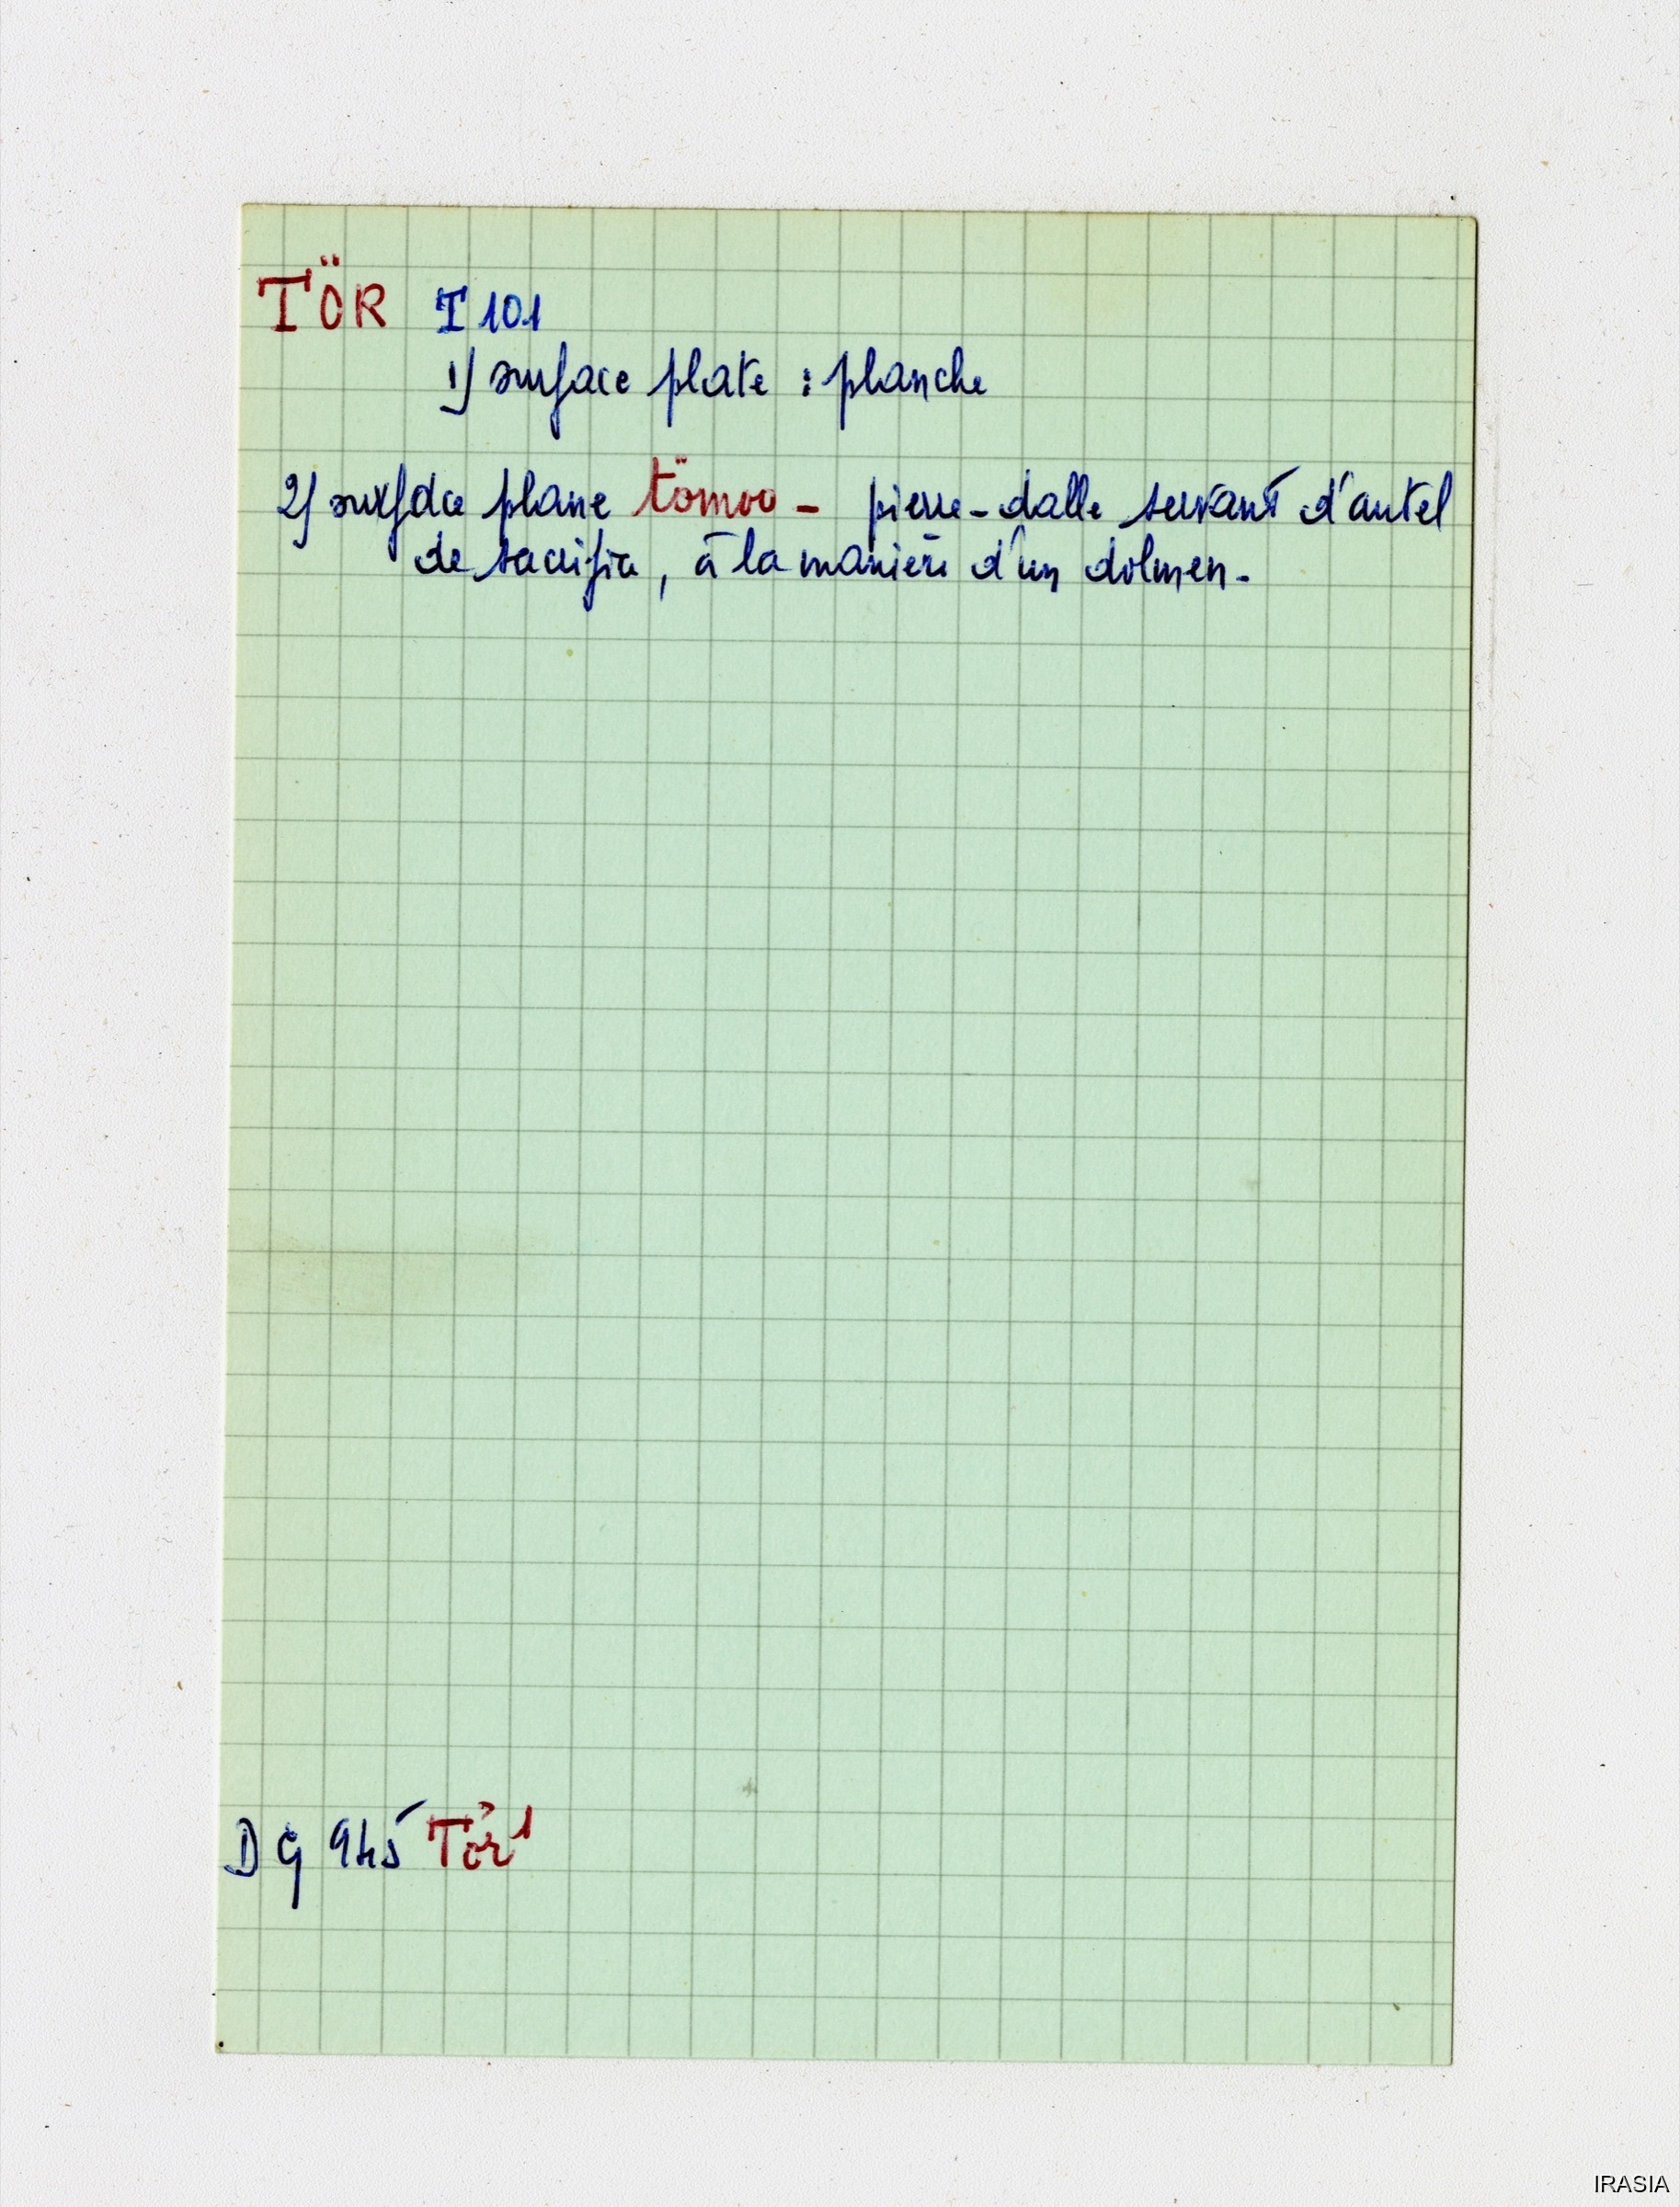 TÖR I 101
1) surface plate : planche
2) surface plane tömoo - pierre-dalle servant d'autel
de sacrifice, à la manière d'un dolmen.
DG 945 Tör¹
IRASIA